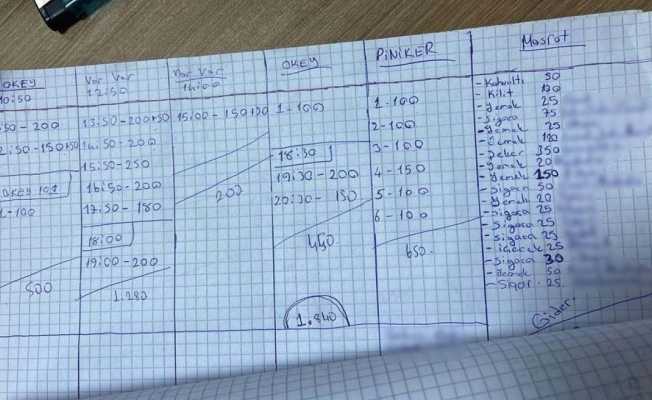 OKEY
10:50
50-200
12:50-150+50
OKEY 101
1-100
500
Var Var
12:50
13:50-200+50
14:50-200
15:50-250
16:50-200
17:50-180
18:00
19:00-200
1.280
Var Var
14:00
15:00-150+50
200
OKEY
1-100
18:30
19:30-200
20:30-150
450
1.840
PiNiKER
1-100
2-100
3-100
4-150
5-100
6-100
650
Masraf
- Kahvaltı 50
- Kilit 100
- Yemek 25
- Sigara 75
- Yemek 25
- Yemek 100
- Şeker 350
- Yemek 20
- Yemek 150
- Sigara 50
- Yemek 20
- Sigara 25
- Sigara 25
- Sigara 25
- içecek 25
- Sigara 30
- Yemek 50
- Sigar. 25
Gider.